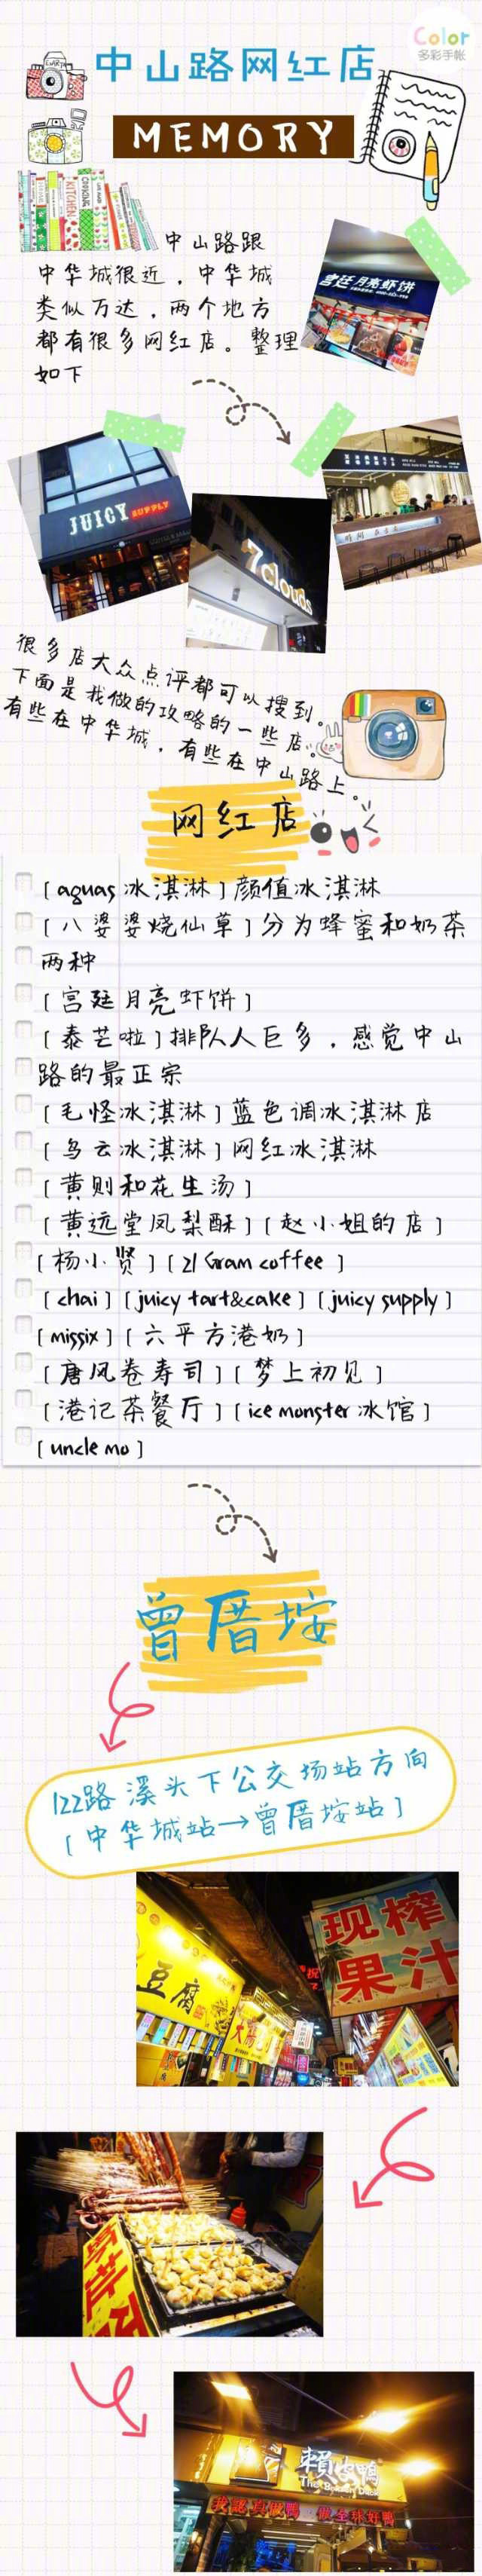 Color
多彩手帐
中山路网红店
MEMORY
KITCHEN
COOKING
中山路跟
中华城很近，中华城
类似万达，两个地方
都有很多网红店。整理
如下
宫廷月亮虾饼
JUICY SUPPLY
7clouds
很多店大众点评都可以搜到。
下面是我做的攻略的一些店。
有些在中华城，有些在中山路上。
网红店
[aguas 冰淇淋]颜值冰淇淋
[八婆婆烧仙草]分为蜂蜜和奶茶
两种
[宫廷月亮虾饼]
[泰芒啦]排队人巨多，感觉中山
路的最正宗
[毛怪冰淇淋]蓝色调冰淇淋店
[乌云冰淇淋]网红冰淇淋
[黄则和花生汤]
[黄远堂凤梨酥][赵小姐的店]
[杨小贤][21 Gram coffee ]
[chai][juicy tart&cake][juicy supply]
[missix][六平方港奶]
[唐风卷寿司][梦上初见]
[港记茶餐厅][ice monster 冰馆]
[uncle mo]
曾厝垵
122路溪头下公交场站方向
[中华城站→曾厝垵站]
现榨
果汁
豆腐
賴皮鴨
我認真做鴨 做全球好鴨